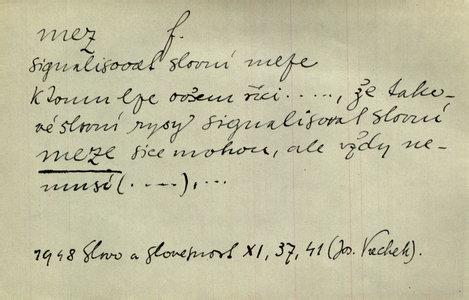 mez f.
signalisovat slovní meze
K tomu lze ovšem říci....., že tako-
vé slovní rysy signalisovat slovní
meze sice mohou, ale vždy ne-
musí (.....),...
1948 Slovo a slovesnost XI, 37, 41 (Jos. Vachek).